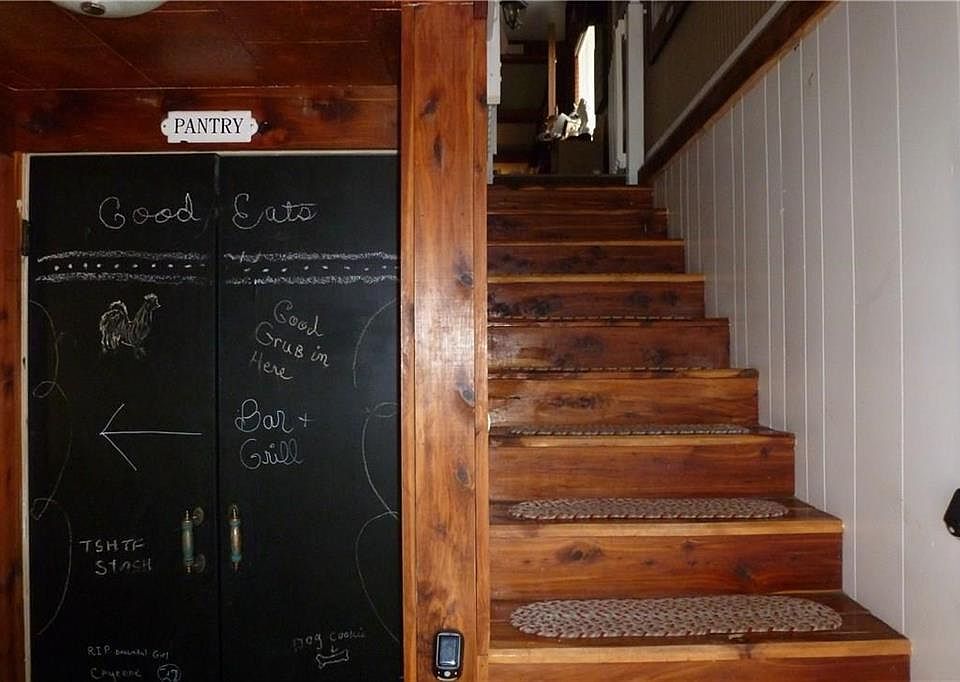 PANTRY
Good Eats
Good
Grub in
Here
Bar +
Grill
TSHTF
STASH
Dog Cookie
R.I.P beautiful Girl
Cayenne